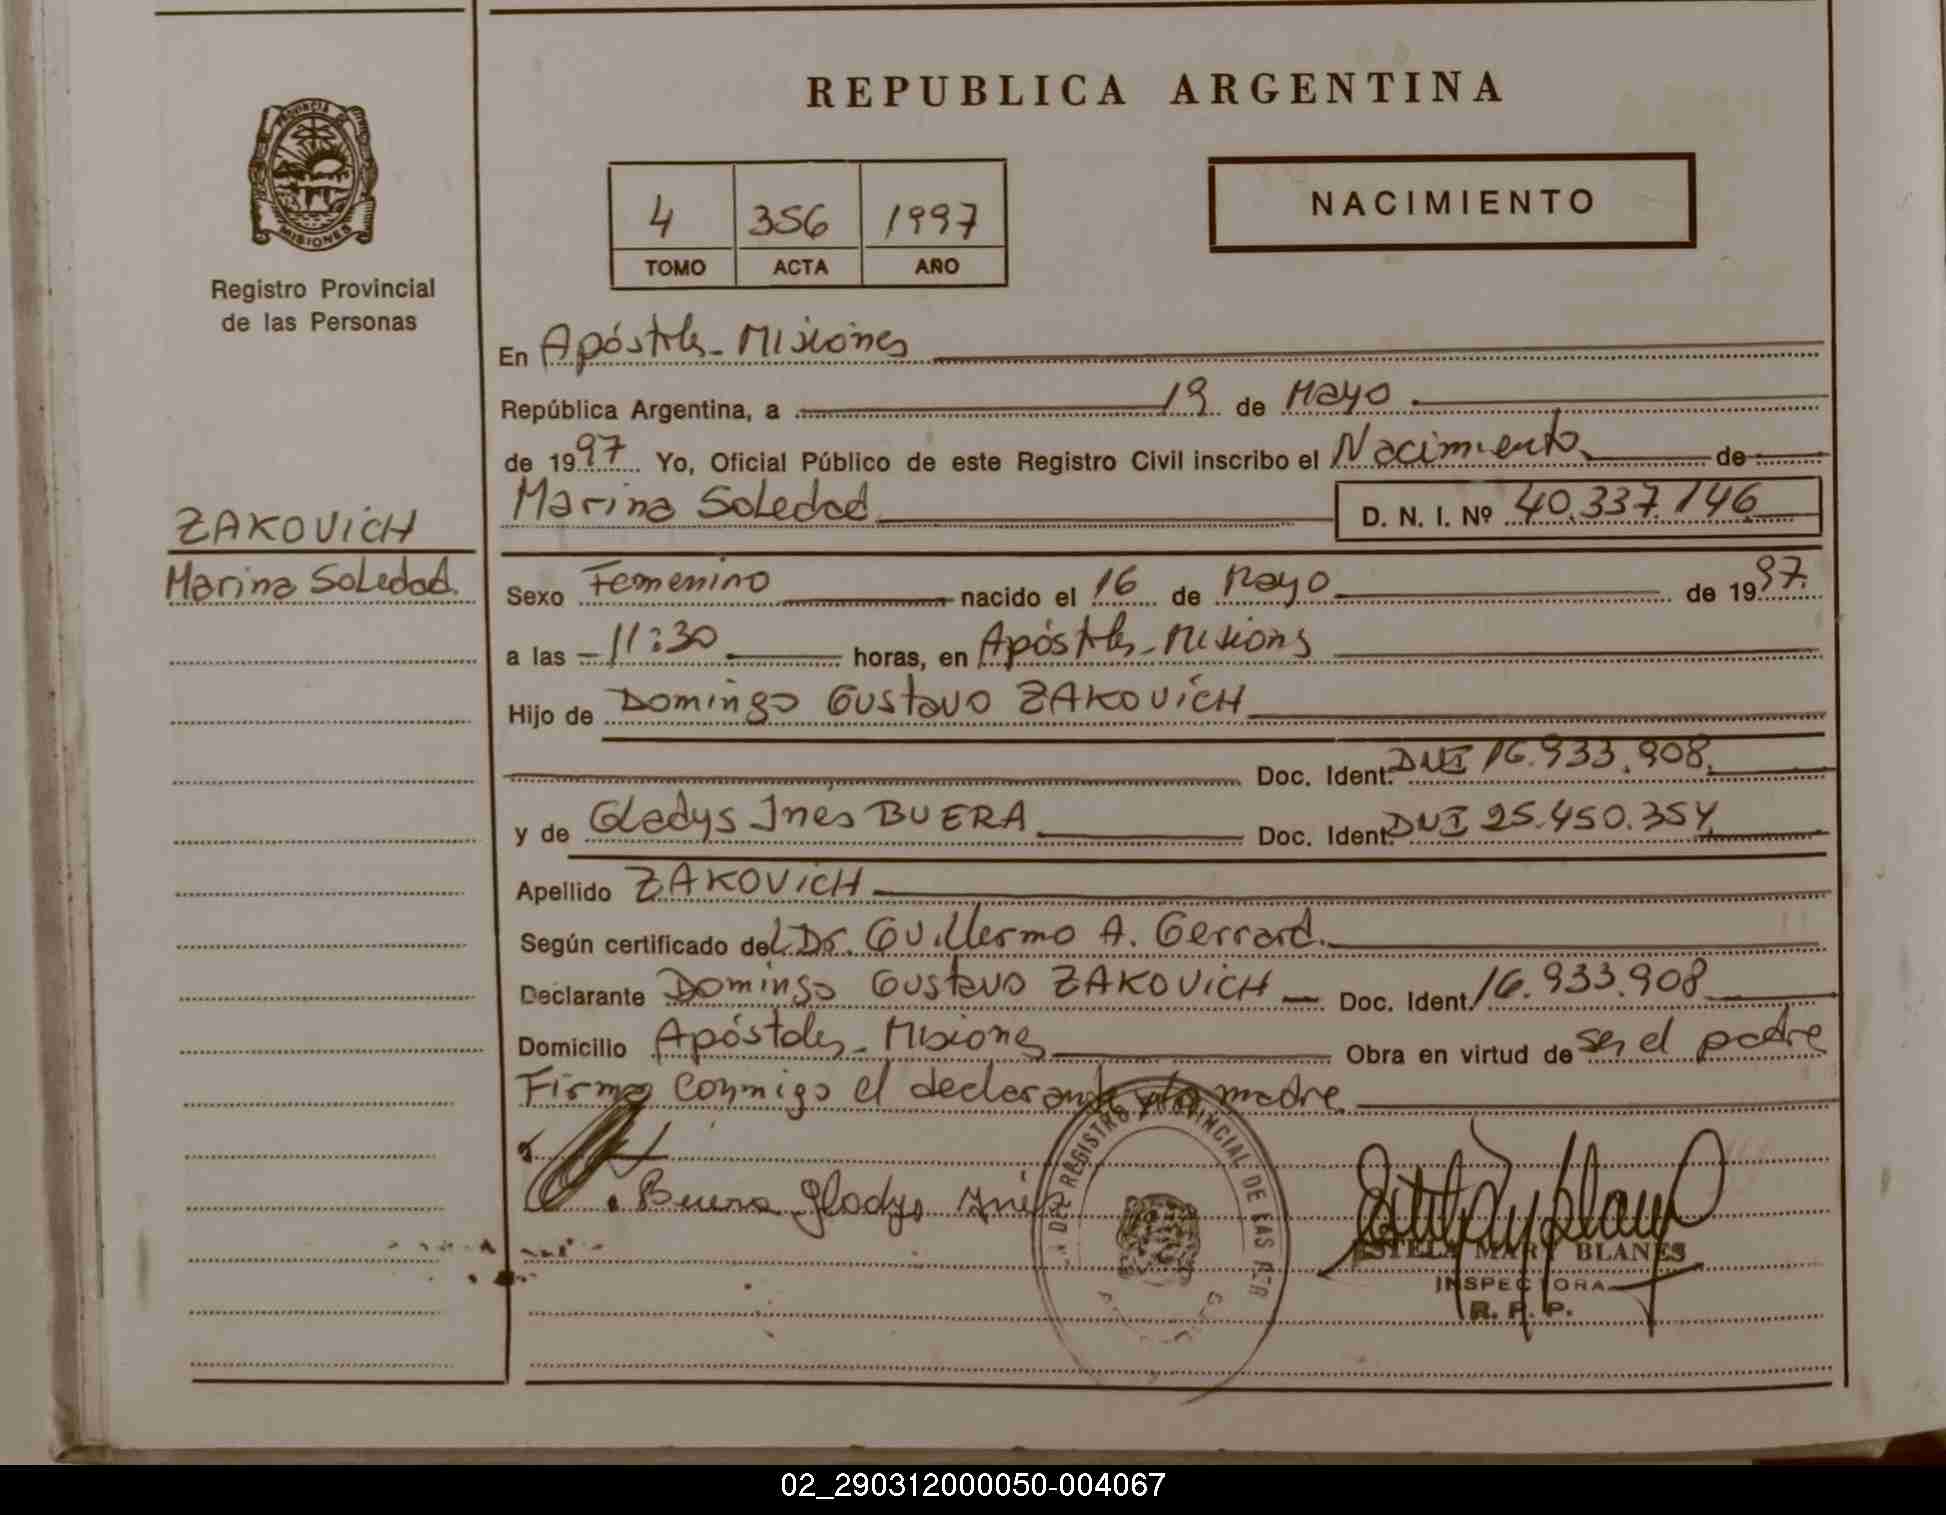 REPUBLICA ARGENTINA
PROVINCIA DE
MISIONES
Registro Provincial
de las Personas
4 356 1997
TOMO ACTA AÑO
NACIMIENTO
En Apóstoles - Misiones
República Argentina, a 19 de Mayo
de 1997 Yo, Oficial Público de este Registro Civil inscribo el Nacimiento de
Marina Soledad D. N. I. Nº 40.337.146
ZAKOVICH
Marina Soledad.
Sexo Femenino nacido el 16 de Mayo de 1997.
a las - 11:30 horas, en Apóstoles - Misiones
Hijo de Domingo Gustavo ZAKOVICH
Doc. Ident. DNI 16.933.908.
y de Gladys Ines BUERA Doc. Ident. DNI 25.450.354
Apellido ZAKOVICH
Según certificado del Dr. Guillermo A. Gerrard.
Declarante Domingo Gustavo ZAKOVICH Doc. Ident. 16.933.908
Domicilio Apóstoles - Misiones Obra en virtud de ser el padre
Firma Conmigo el declarante y la madre
Buera Gladys Inés
REGISTRO PROVINCIAL DE LAS PER
ESTELA MARY BLANES
INSPECTORA
R. P. P.
02_290312000050-004067